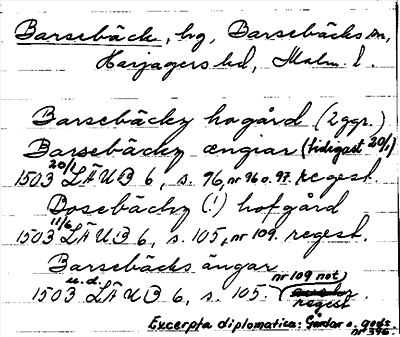 Barsebäck, hg, Barsebäcks sn,
Harjagers hd, Malm. l.
Barsebäcky hogård (2 ggr.)
Barsebäcky ængiar (tidigast 20/1)
20/1
1503 LÄUB 6, s. 96, nr 96 o. 97. regest.
Bosebäcky (!) hofgård
11/6
1503 LÄUB 6, s. 105, nr 109. regest.
Barsebäcks ängar
u.d. nr 109 not)
1503 LÄUB 6, s. 105. regest.
Excerpta diplomatica: Gårdar o. gods.
nr 376.